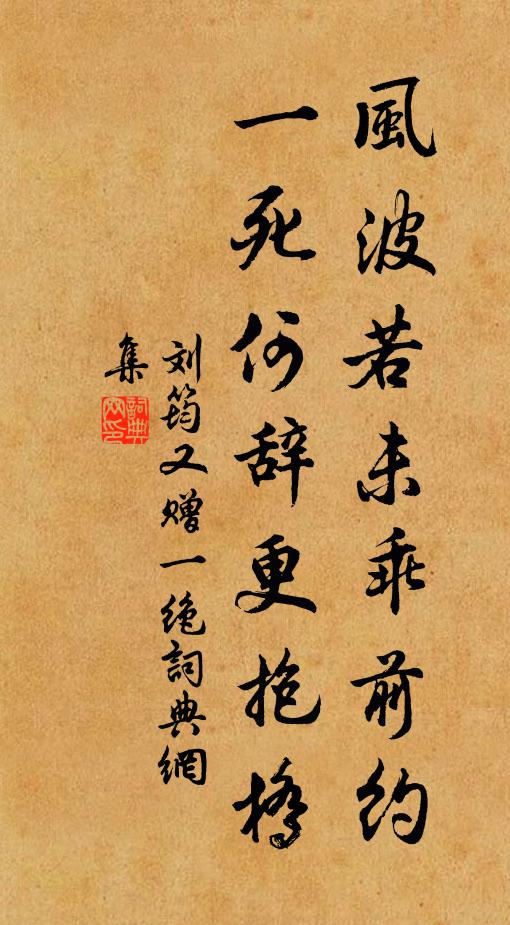 風波若未乖前约
一死何辞更抱橋
刘筠又赠一绝詞典網
集
詞典網印